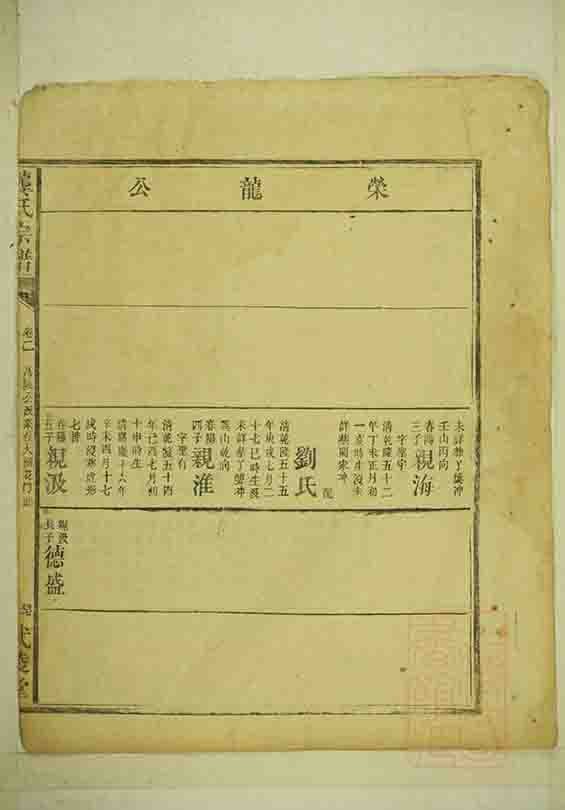 榮龍公
未詳葬丫髻冲
壬山丙向
春
三子
親海
字聖宇
清乾隆五十二
年丁未正月初
一亥時生沒未
詳葬周家冲
配
劉氏
清乾隆五十五
年庚戌七月二
十七巳時生沒
未詳葬丫髻冲
山乾向
春陽
四子
親淮
字聖有
清乾隆五十四
年己酉七月初
十申時生
清嘉慶十六年
辛未四月十七
戌時沒葬虎形
七排
春陽
五子
親汲
親汲
長子
德盛
龔氏宗譜
卷二
武陵堂